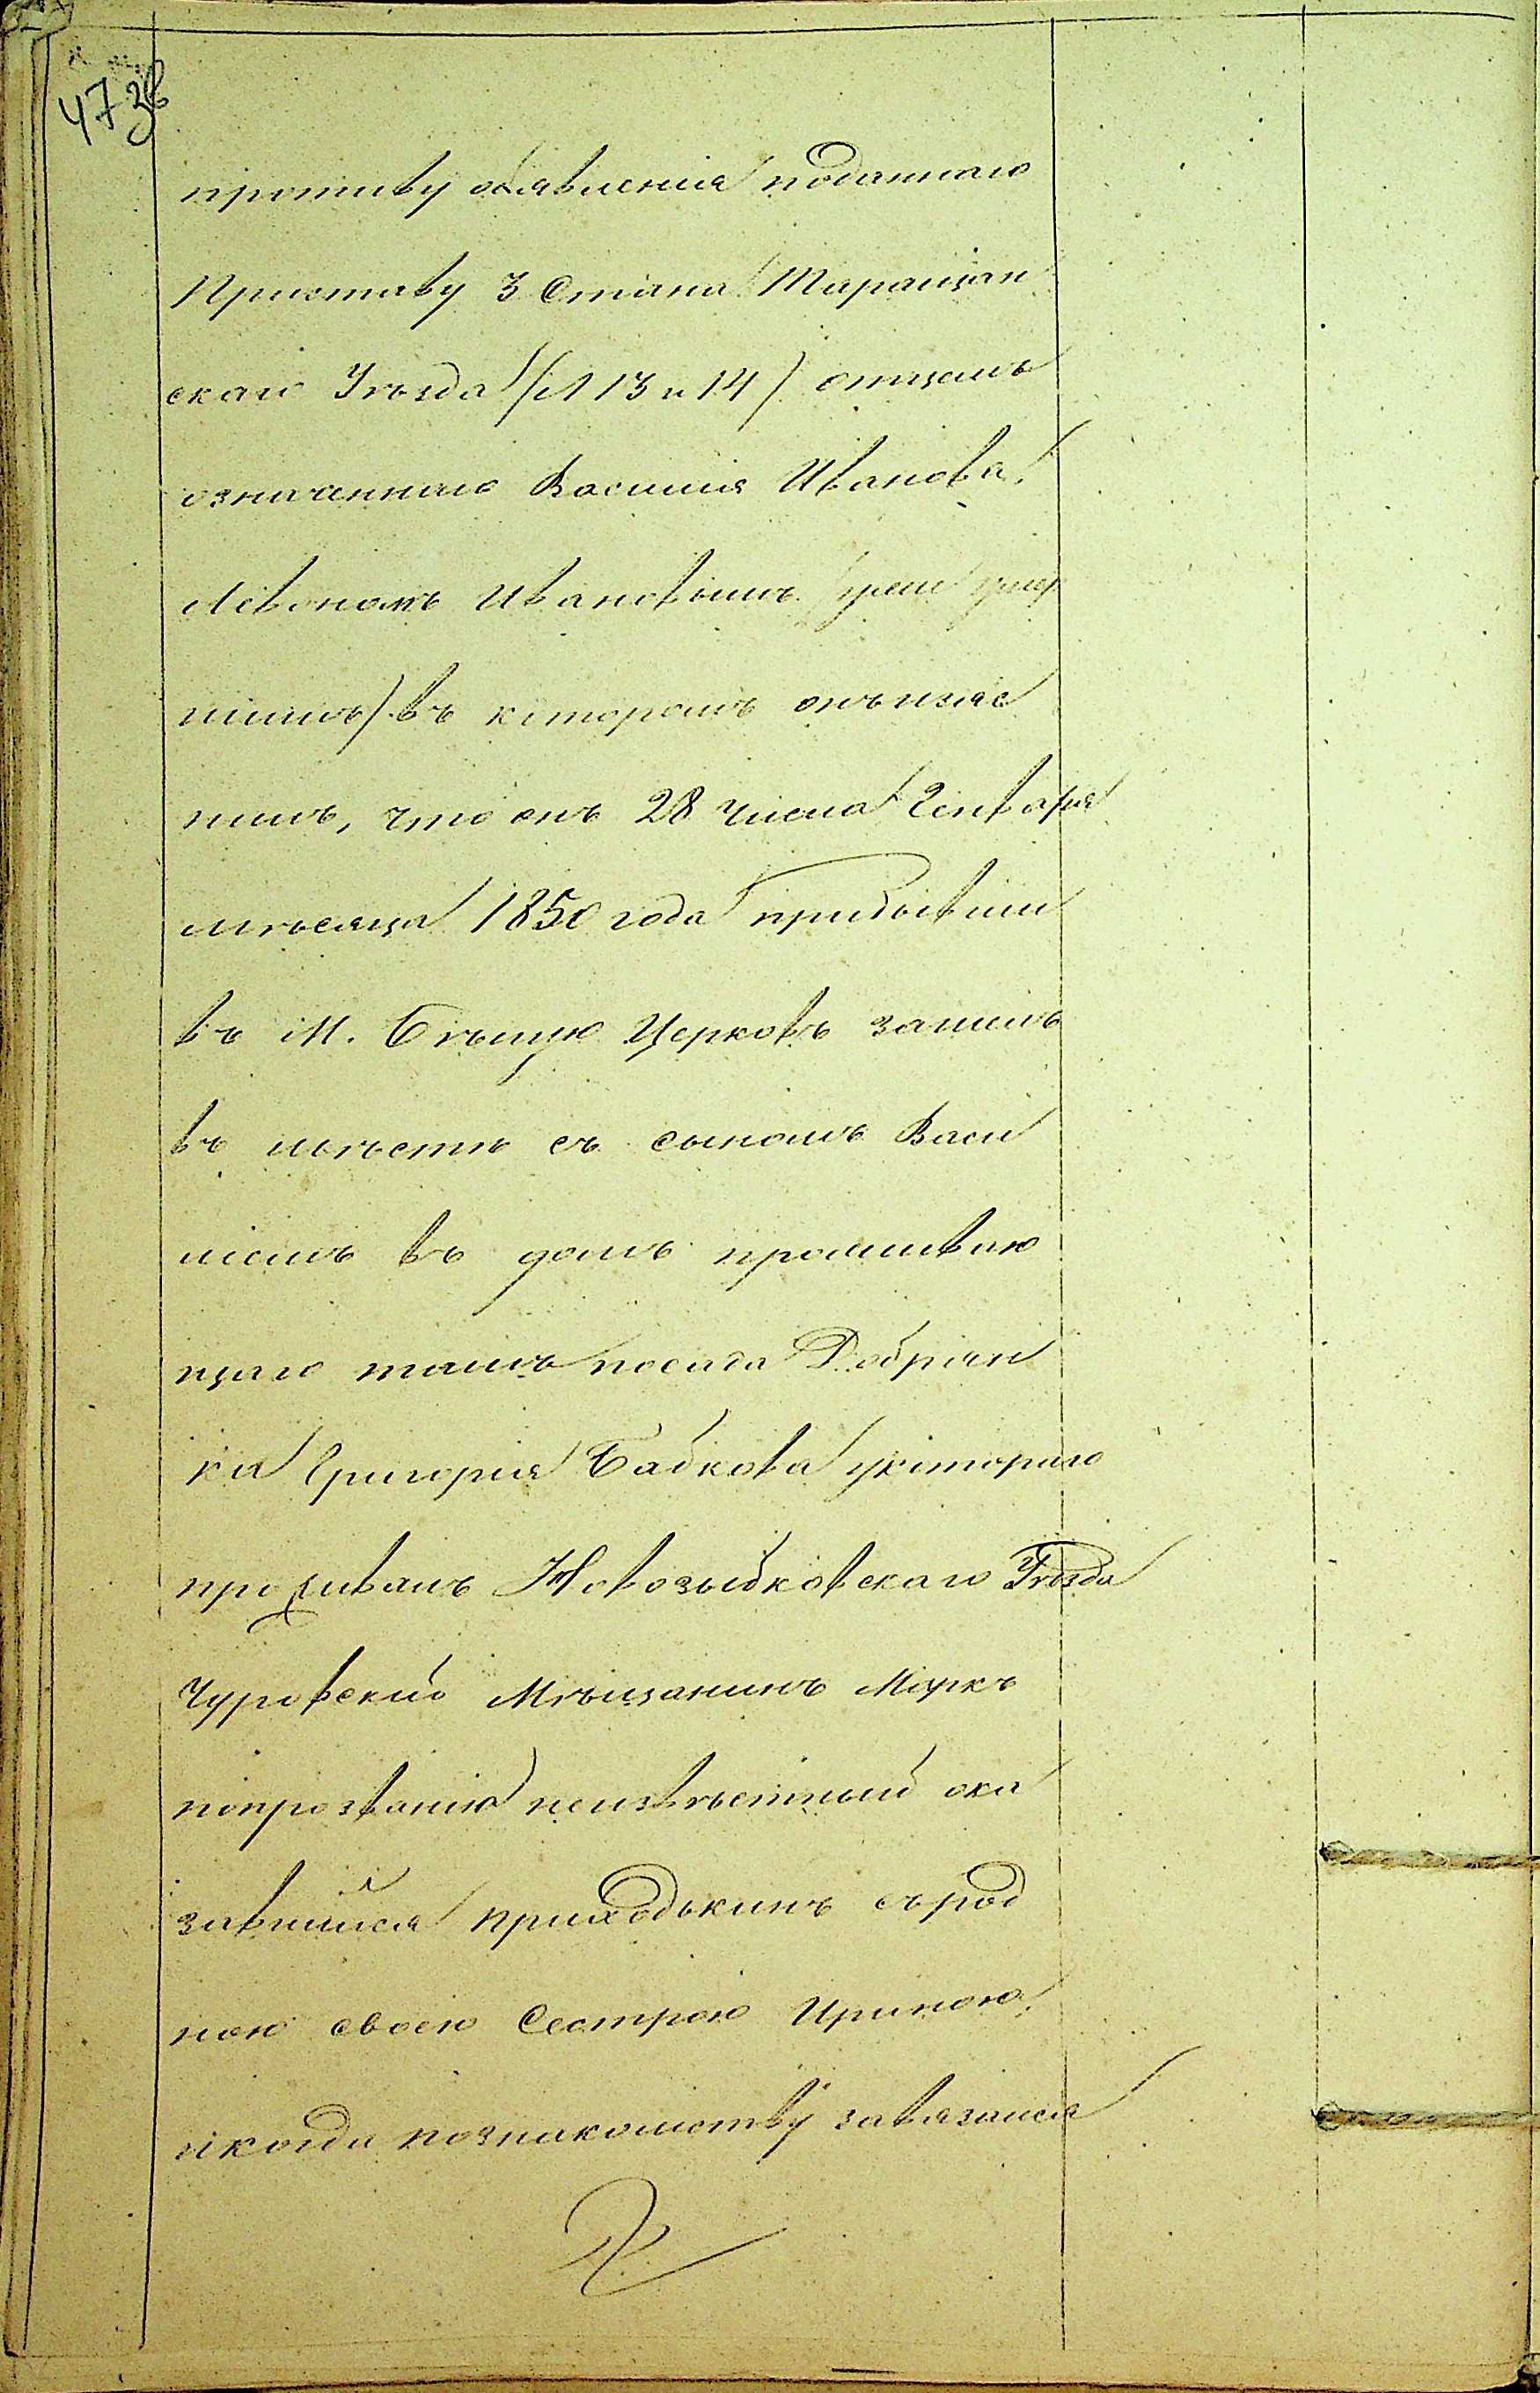 47 зв
противу объявленія поданнаго
Приставу 3 Стана Таращан
скаго Уѣзда (Л 13 и 14) отцемъ
означеннаго Василія Иванова,
Левономъ Ивановымъ (уже умер
шимъ) въ которомъ онъ изяс
нилъ, что онъ 28 числа Генваря
мѣсяца 1850 года прибывши
въ М. Бѣлую Церковъ зашелъ
въ мѣстѣ съ сыномъ Васи
ліемъ въ домъ проживаю
щаго тамъ посада Добрян
ка Григорія Бабкова укотораго
проживалъ Новозыбковскаго Уѣзда
Чуровскій Мѣщанинъ Маркъ
попрозванію неизвѣстный ока
завшійся Приходькинъ съ род
ною своею Сестрою Ириною,
икогда познакомству завязался